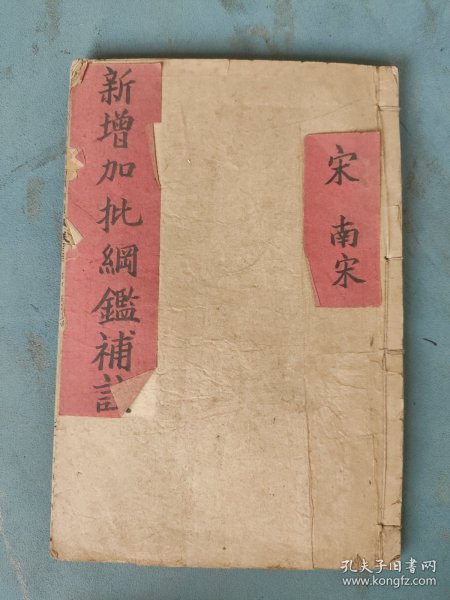 新增加批綱鑑補註
宋 南宋
孔夫子旧书网
www.kongfz.com